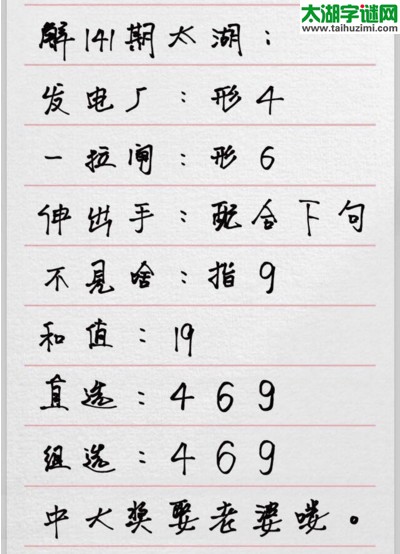 太湖字谜网
www.taihuzimi.com
解141期太湖：
发电厂：形4
一拉闸：形6
伸出手：配合下句
不见啥：指9
和值：19
直选：469
组选：469
中大奖娶老婆喽。